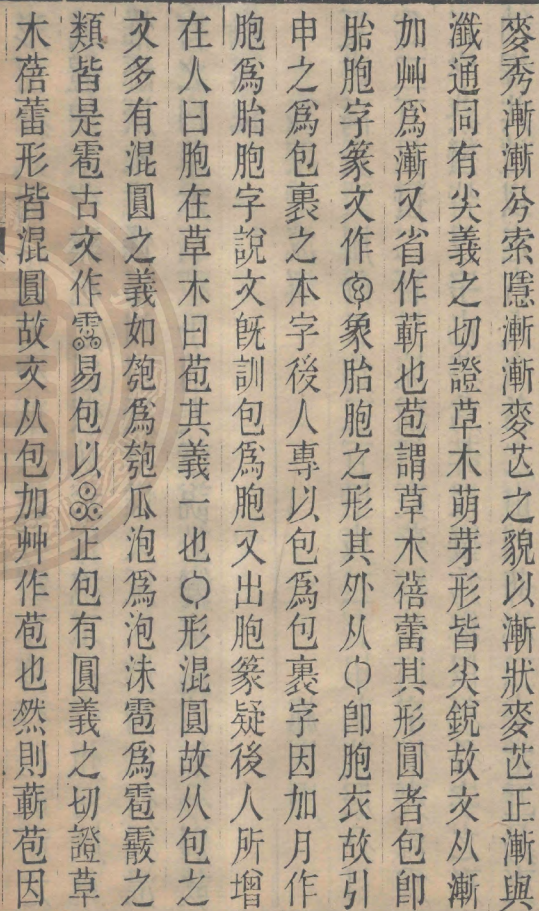 麥秀漸漸兮索隱漸漸麥芒之貌以漸狀麥芒正漸與
瀸通同有尖義之切證草木萌芽形皆尖銳故文从漸
加艸爲蔪又省作蕲也苞謂草木蓓蕾其形圓者包卽
胎胞字篆文作象胎胞之形其外从卽胞衣故引
申之爲包裹之本字後人專以包爲包裹字因加月作
胞爲胎胞字說文旣訓包爲胞又出胞篆疑後人所增
在人曰胞在草木曰苞其義一也形混圓故从包之
文多有混圓之義如匏爲匏瓜泡爲泡沫雹爲雹霰之
類皆是雹古文作易包以正包有圓義之切證草
木蓓蕾形皆混圓故文从包加艸作苞也然則蕲苞因